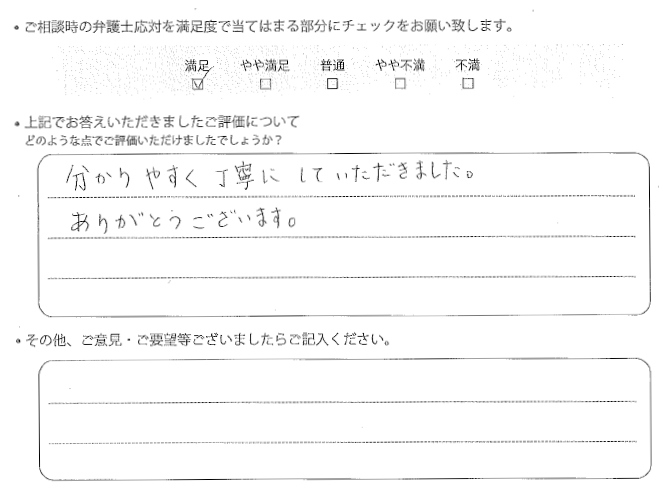 ・ご相談時の弁護士応対を満足度で当てはまる部分にチェックをお願い致します。
満足 やや満足 普通 やや不満 不満
☑ □ □ □ □
・上記でお答えいただきましたご評価について
どのような点でご評価いただけましたでしょうか？
分かりやすく丁寧にしていただきました。
ありがとうございます。
・その他、ご意見・ご要望等ございましたらご記入ください。